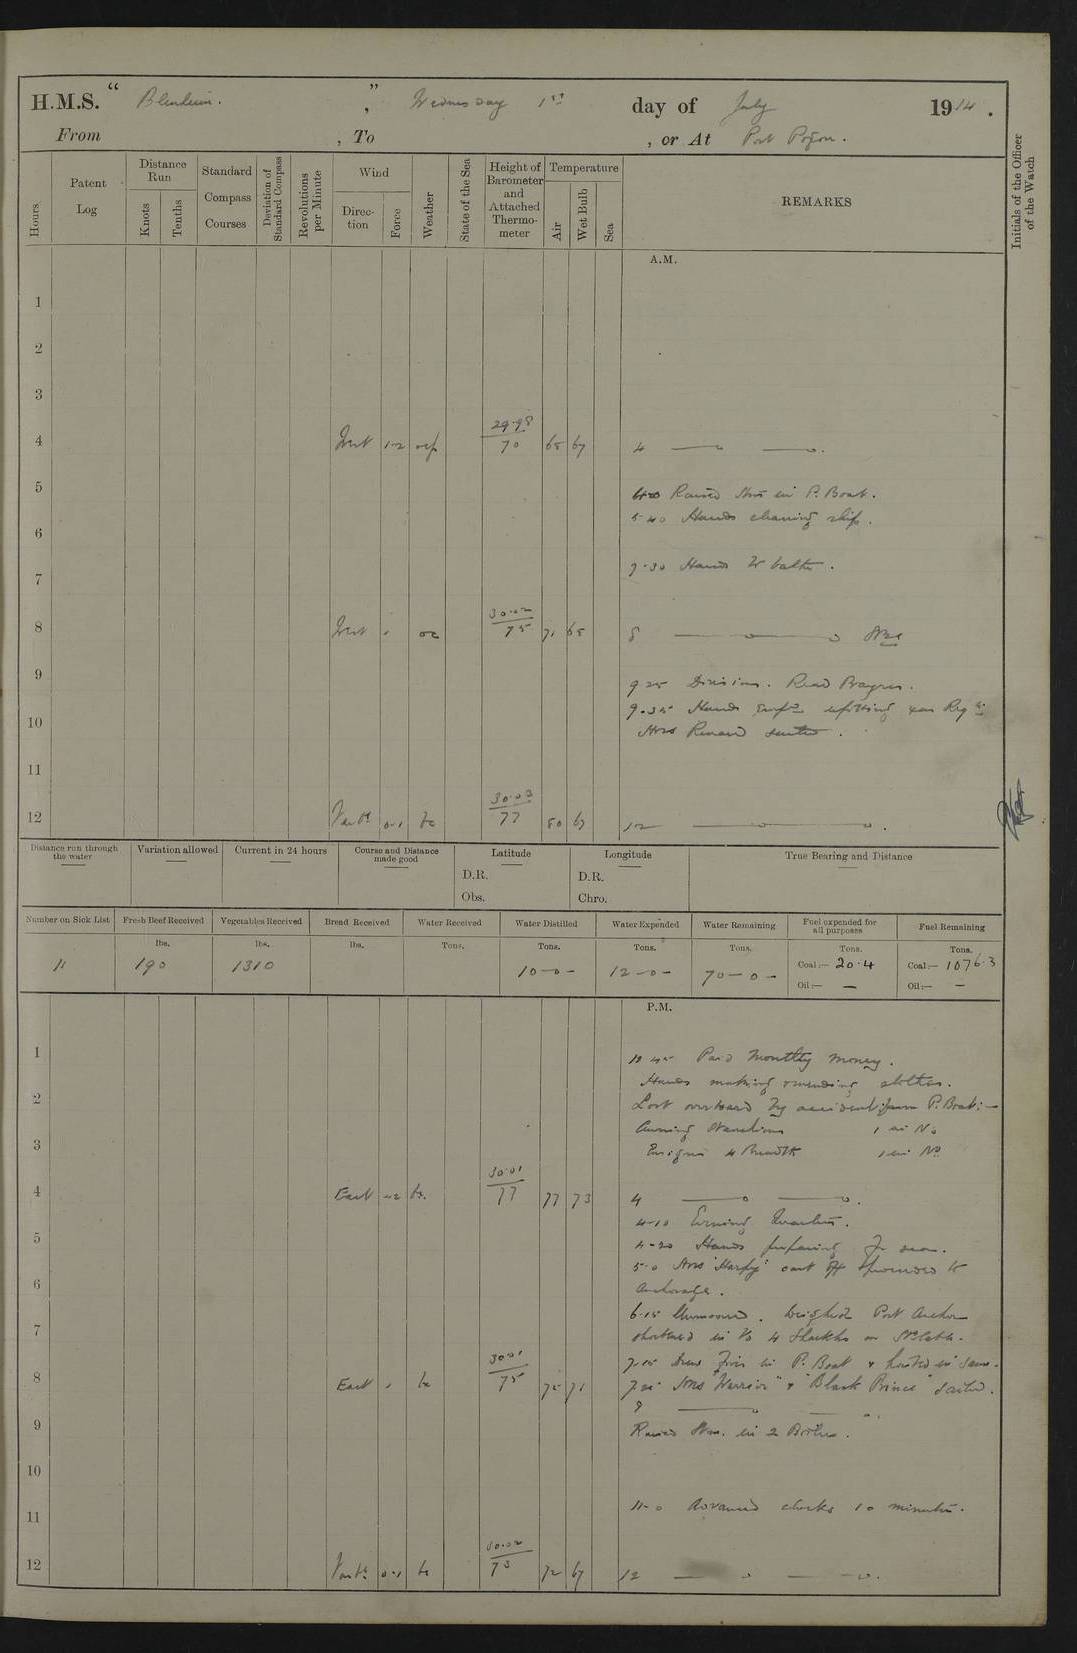 H.M.S. " Blenheim. " , Wednesday 1st day of July 1914.
From , To , or At Port
Hours
Patent Log
Distance Run
Knots
Tenths
Standard Compass Courses
Deviation of Standard Compass
Revolutions per Minute
Wind
Direction
Force
Weather
State of the Sea
Height of Barometer and Attached Thermometer
Temperature
Air
Wet Bulb
Sea
REMARKS
Initials of the Officer of the Watch
A.M.
1
2
3
29.98
4 West 1-2 70 68 67 4
5
Raised Stm in P. Boat.
5-40 Hands cleaning ship.
6
7-30 Hands to bathe.
7
30.02
8 West 75 71 65 8
9
9 25 Divisions. Read Prayers.
9.35 Hands refitting
10
HMS
11
30.03
12 Varble 0-1 bc 77 80 67 12
Distance run through the water
Variation allowed
Current in 24 hours
Course and Distance made good
Latitude
D.R.
Obs.
Longitude
D.R.
Chro.
True Bearing and Distance
Number on Sick List
Fresh Beef Received
Vegetables Received
Bread Received
Water Received
Water Distilled
Water Expended
Water Remaining
Fuel expended for all purposes
Fuel Remaining
lbs. lbs. lbs. Tons. Tons. Tons. Tons. Tons. Tons.
11 190 1310 10-0- 12-0- 70-0- Coal:— 20.4 Coal:— 1076.3
Oil:— — Oil:— —
P.M.
1
12 45 Paid Monthly Money.
Hands making & mending clothes.
2
Lost overboard by accident from P. Boat:—
Awning Stanchions 1 in No
3
Ensigns 4 Breadth 1 in No
30.01
4 East 1-2 bc. 77 77 73 4
4-10 Evening Quarters.
5
4-20 Hands preparing for sea.
5-0 HMS "Harpy" cast off & proceeded to
anchorage.
6
6-15 Unmoored. Weighed Port Anchor
shortened in to 4 Shackles on St Cable.
7
7-15 Drew Fires in P. Boat & hoisted in same.
30.01
8 East bc 75 75 71
HMS "Warrior" & "Black Prince" sailed.
8
9
Raised Stm. in 2 Boilers.
10
11-0 Advanced clocks 10 minutes.
11
30.02
12 Varble 0-1 bc 73 72 67 12